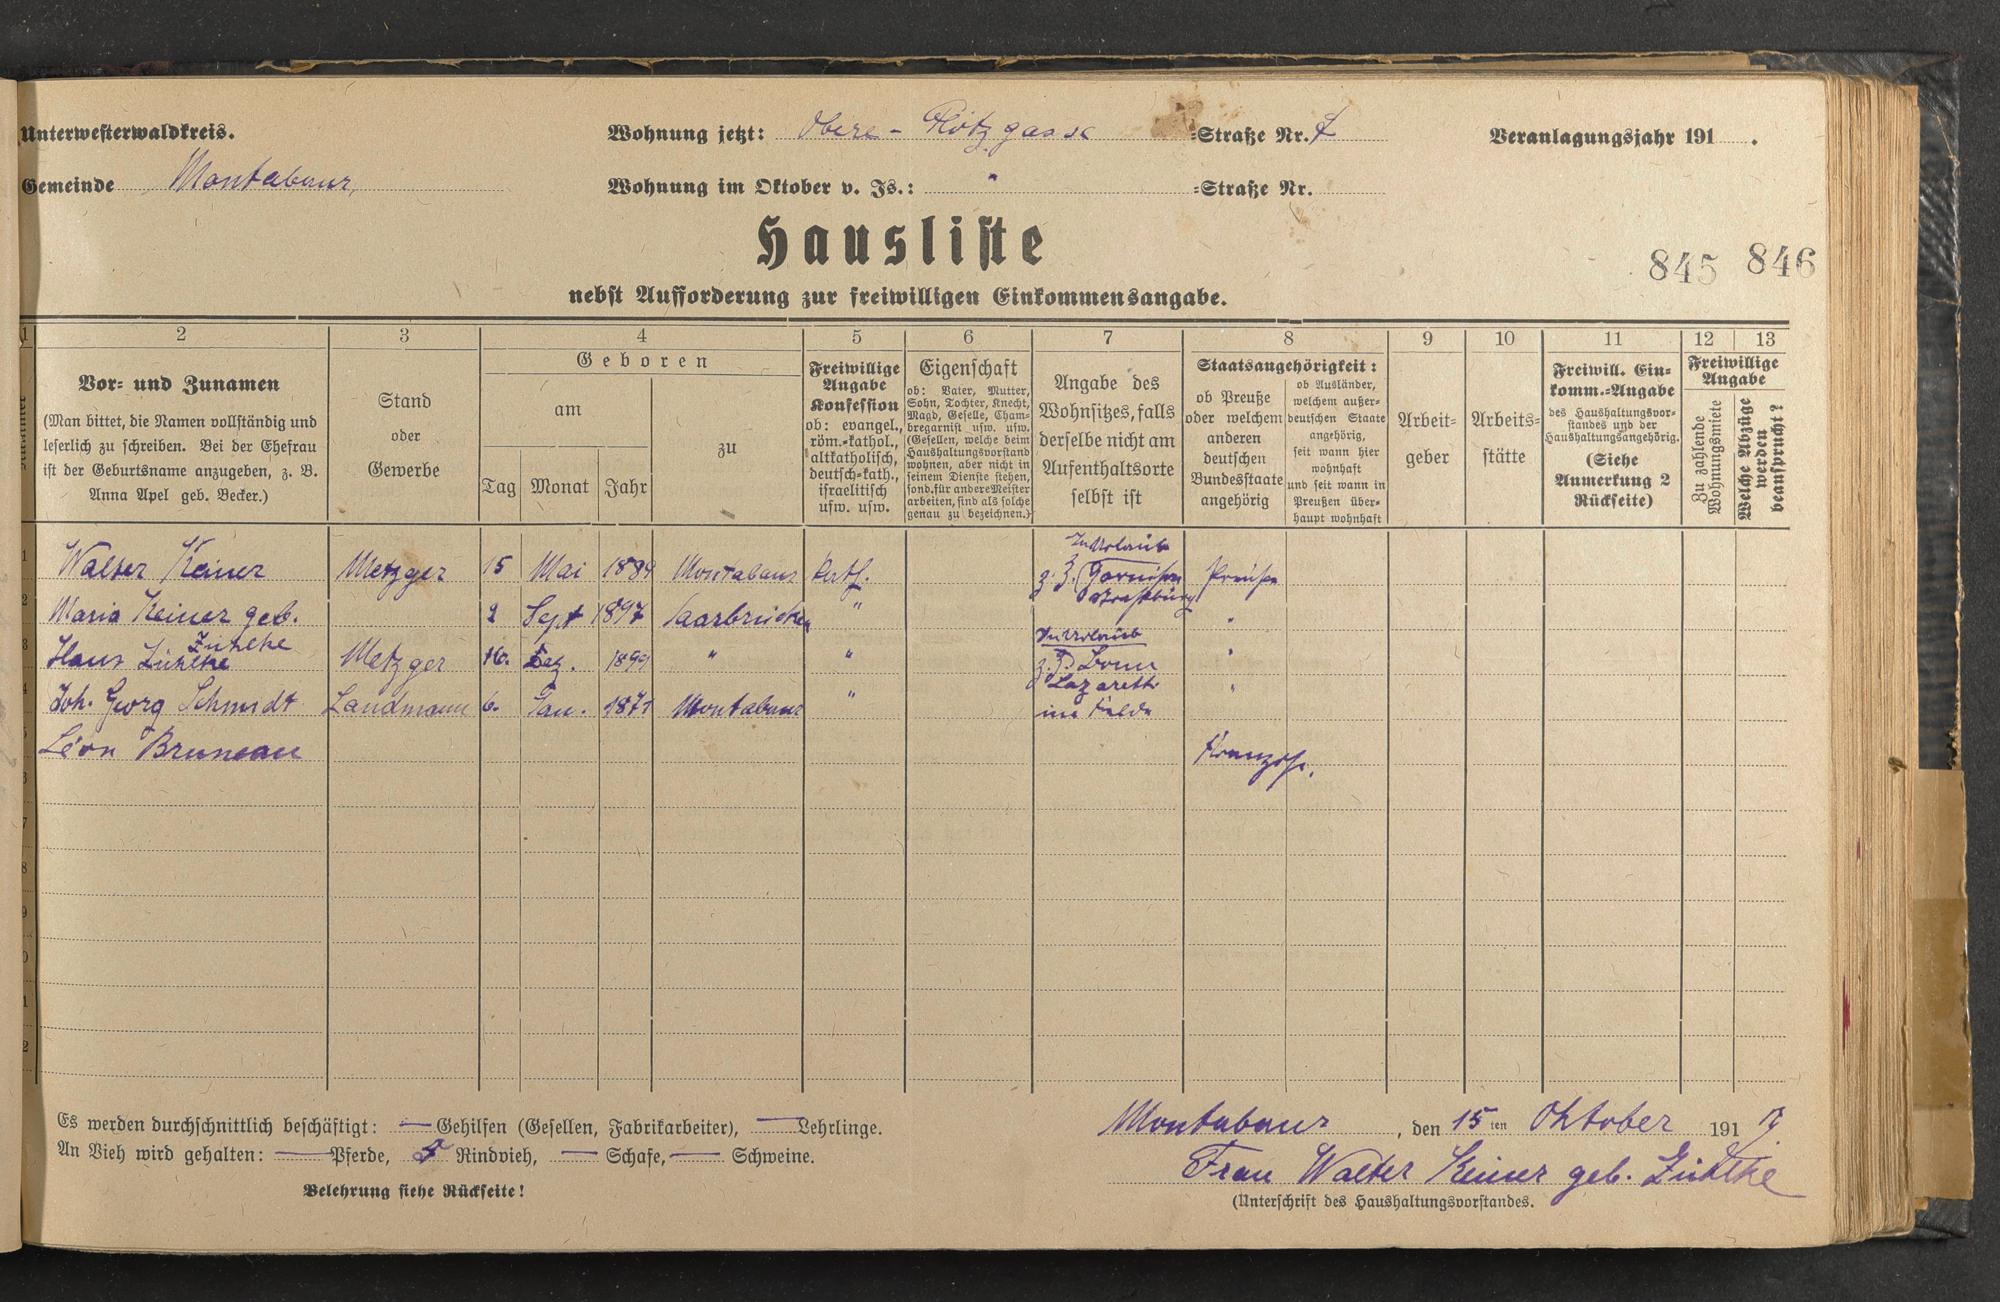 Unterwesterwaldkreis.
Wohnung jetzt: Obere-Plötzgasse =Straße Nr. 7
Veranlagungsjahr 191 .
Gemeinde Montabaur,
Wohnung im Oktober v. Js.: " =Straße Nr.
Hausliste
845 846
nebst Aufforderung zur freiwilligen Einkommensangabe.
1 2 3 4 5 6 7 8 9 10 11 12 13
Vor- und Zunamen
(Man bittet, die Namen vollständig und
leserlich zu schreiben. Bei der Ehefrau
ist der Geburtsname anzugeben, z. B.
Anna Apel geb. Becker.)
Stand
oder
Gewerbe
Geboren
am
Tag Monat Jahr
zu
Freiwillige
Angabe
Konfession
ob: evangel.,
röm.-kathol.,
altkatholisch,
deutsch-kath.,
israelitisch
usw. usw.
Eigenschaft
ob: Vater, Mutter,
Sohn, Tochter, Knecht,
Magd, Geselle, Cham-
bregarnist usw. usw.
(Gesellen, welche beim
Haushaltungsvorstand
wohnen, aber nicht in
seinem Dienste stehen,
sond. für andere Meister
arbeiten, sind als solche
genau zu bezeichnen.)
Angabe des
Wohnsitzes, falls
derselbe nicht am
Aufenthaltsorte
selbst ist
Staatsangehörigkeit:
ob Preuße
oder welchem
anderen
deutschen
Bundesstaate
angehörig
ob Ausländer,
welchem außer-
deutschen Staate
angehörig,
seit wann hier
wohnhaft
und seit wann in
Preußen über-
haupt wohnhaft
Arbeit-
geber
Arbeits-
stätte
Freiwill. Ein-
komm.-Angabe
des Haushaltungsvor-
standes und der
Haushaltungsangehörig.
(Siehe
Anmerkung 2
Rückseite)
Freiwillige
Angabe
Zu zahlende
Wohnungsmiete
Welche Abzüge
werden
beansprucht?
1 Walter Keiner Metzger 15 Mai 1889 Montabaur kath. In Urlaub
z. Z. Garnison
Strassburg Preuße
2 Maria Keiner geb.
Zühlke 2 Sept 1897 Saarbrücken " "
3 Hans Zühlke Metzger 16. Dez. 1899 " " In Urlaub
z. Z. Bonn
Lazarett "
4 Joh. Georg Schmidt Landmann 6. Jan. 1871 Montabaur " im Felde "
5 Léon Bruneau Franzose.
Es werden durchschnittlich beschäftigt: — Gehilfen (Gesellen, Fabrikarbeiter), — Lehrlinge.
An Vieh wird gehalten: — Pferde, 5 Rindvieh, — Schafe, — Schweine.
Belehrung siehe Rückseite!
Montabaur, den 15ten Oktober 1917
Frau Walter Keiner geb. Zühlke
(Unterschrift des Haushaltungsvorstandes.